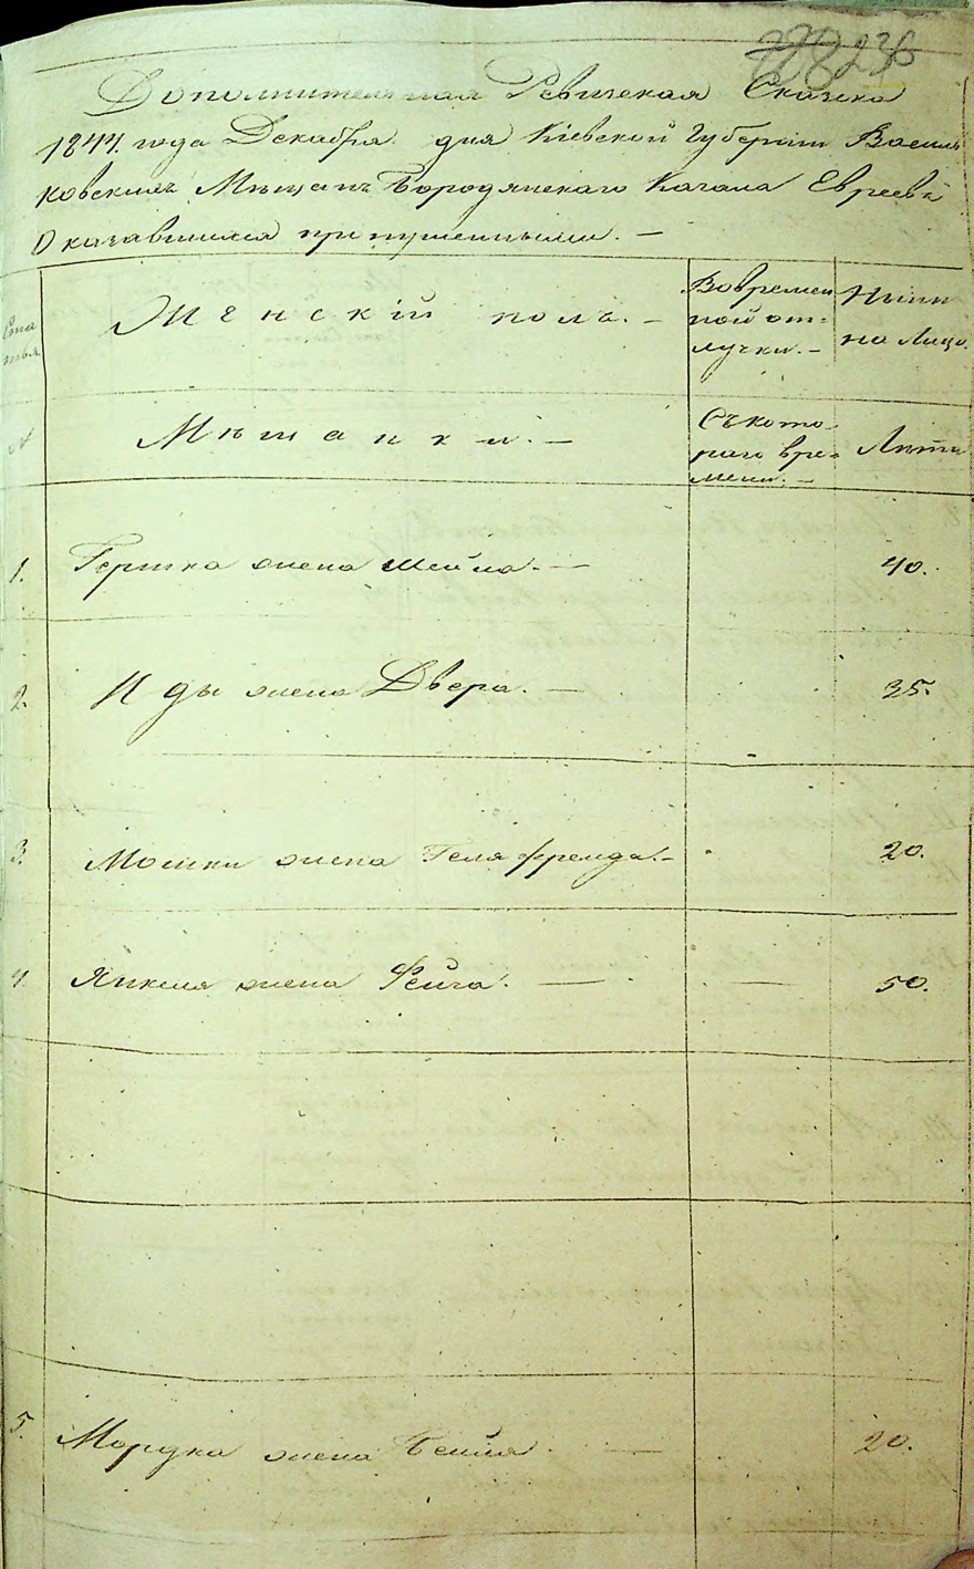 236
Дополнительная Ревизская Сказка
1844 года Декабря дня Кіевской Губерніи Василь
ковскихъ Мѣщанъ Бородянскаго Кагала Евреевъ
Оказавшимся пропущенными. —
Ста
тья
Женскій полъ. —
Во времен
ной от=
лучки. —
Нынѣ
на лицо.
№
Мѣщанки. —
Съ кото
раго вре=
мени. —
Лѣта
1. Гершка жена Шейла. — 40.
2. Иды жена Двера. — 35.
3. Мошки жена Геля Фрейда. — 20.
4. Янкеля жена Фейга. — — 50.
5. Мордка жена Бейля. — 20.